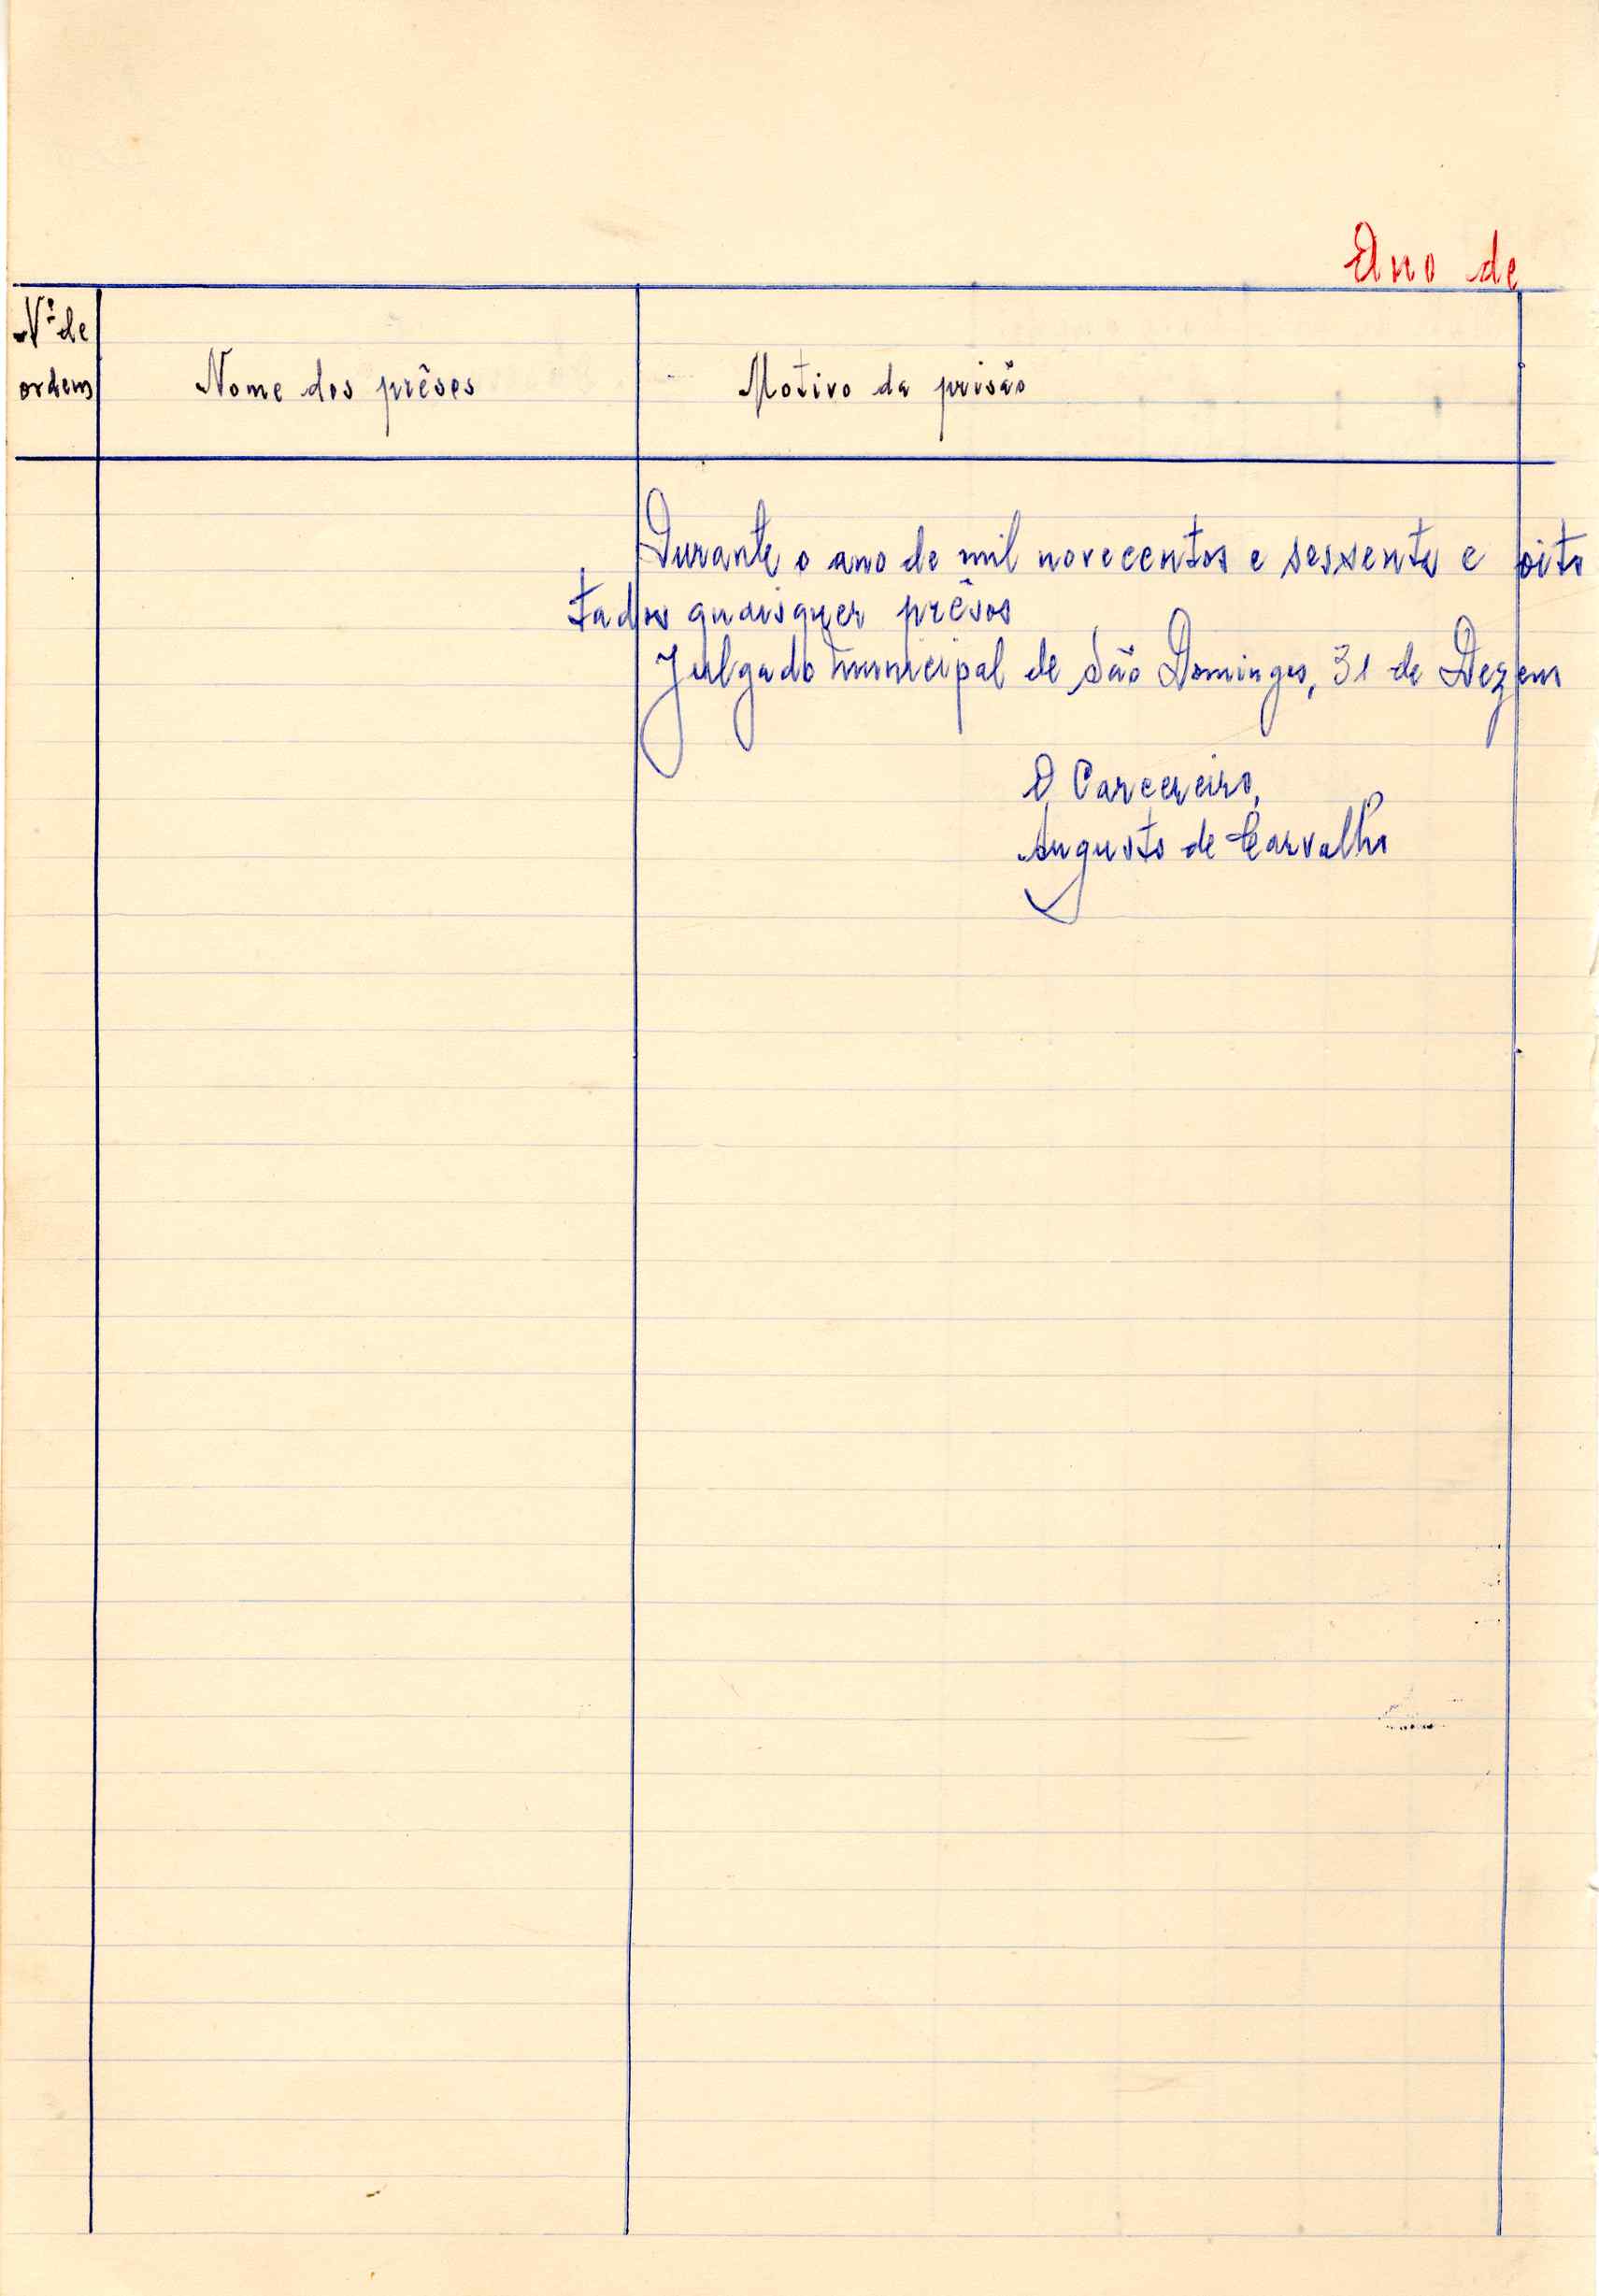 Ano de
Nº de
ordem
Nome dos prêsos
Motivo da prisão
Durante o ano de mil novecentos e sessenta e oito
tados quaisquer prêsos
Julgado municipal de São Domingos, 31 de Dezem
O Carcereiro,
Augusto de Carvalho